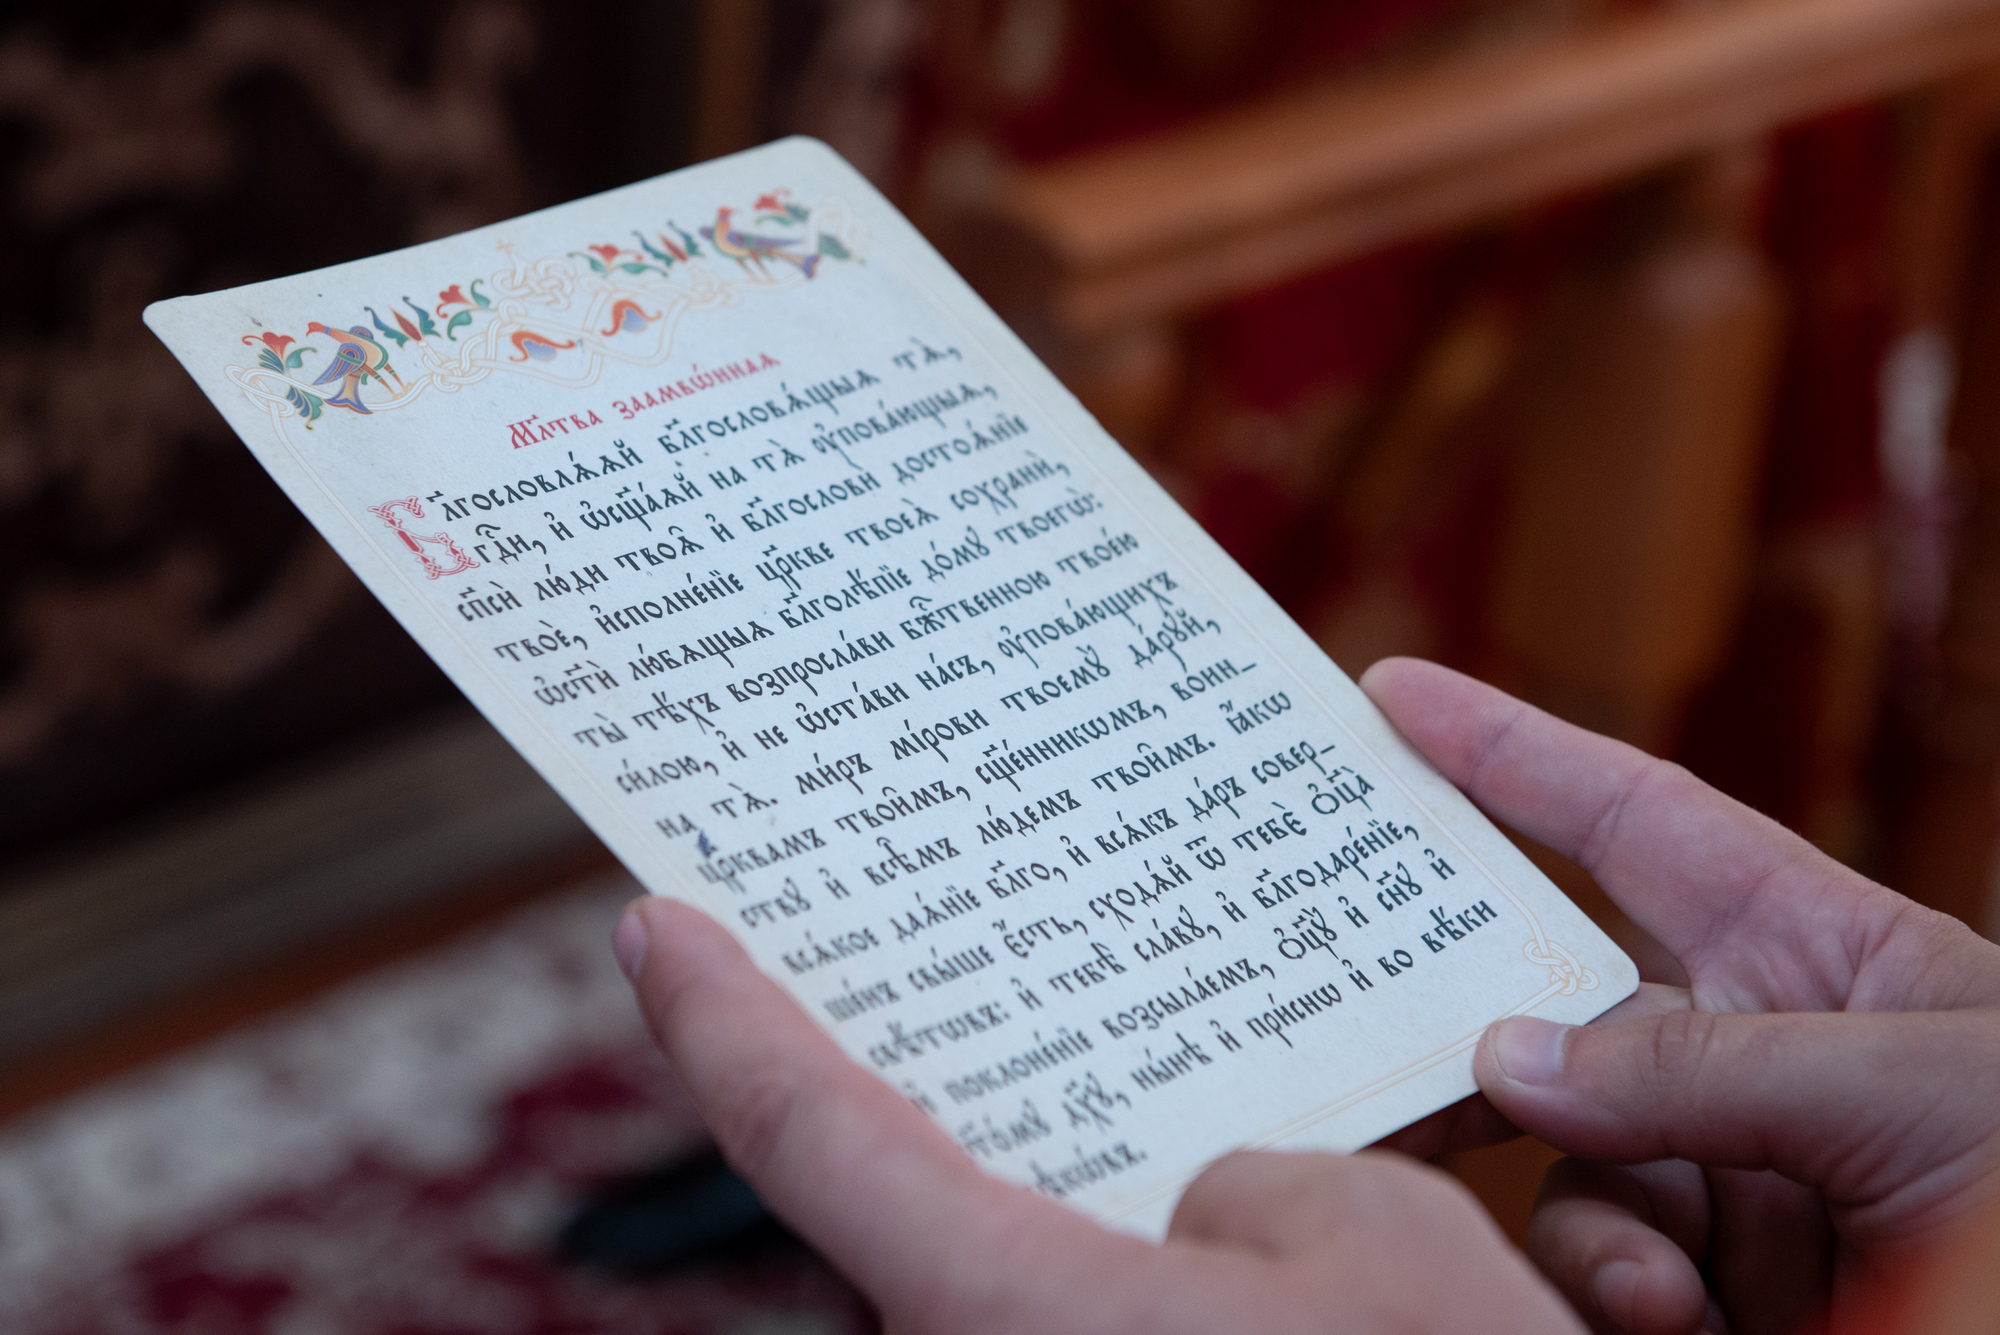 Мл҃тва заамвѡ́нная
Бл҃гословлѧ́ѧй бл҃гословѧ́щыѧ тѧ̀,
гдⷭ҇и, и҆ ѡ҆сщ҃а́ѧй на тѧ̀ ᲂу҆пова́ющыѧ,
сп҃сѝ лю́ди твоѧ̑ и҆ бл҃гословѝ достоѧ́нїе
твоѐ, и҆сполне́нїе цр҃кве твоеѧ̀ сохранѝ,
ѡ҆ст҃ѝ лю́бѧщыѧ бл҃голѣ́пїе до́мꙋ твоегѡ̀:
ты̀ тѣ́хъ возпросла́ви бжⷭ҇твенною твое́ю
си́лою, и҆ не ѡ҆ста́ви на́съ, ᲂу҆пова́ющихъ
на тѧ̀. ми́ръ мі́рови твоемꙋ̀ да́рꙋй,
цр҃квамъ твои̑мъ, сщ҃е́нникѡмъ, воин-
ствꙋ и҆ всѣ̑мъ лю́демъ твои̑мъ. ꙗ҆́кѡ
всѧ́кое даѧ́нїе бл҃го, и҆ всѧ́къ да́ръ совер-
ше́нъ свы́ше є҆́сть, сходѧ́й ѿ тебє̀ ѻ҆ц҃а̀
свѣ́тѡвъ: и҆ тебѣ̀ сла́вꙋ, и҆ бл҃годаре́нїе,
и҆ поклоне́нїе возсыла́емъ, ѻ҆ц҃ꙋ̀ и҆ сн҃ꙋ и҆
ст҃о́мꙋ дх҃ꙋ, ны́нѣ и҆ при́снѡ и҆ во вѣ́ки
вѣкѡ́въ.